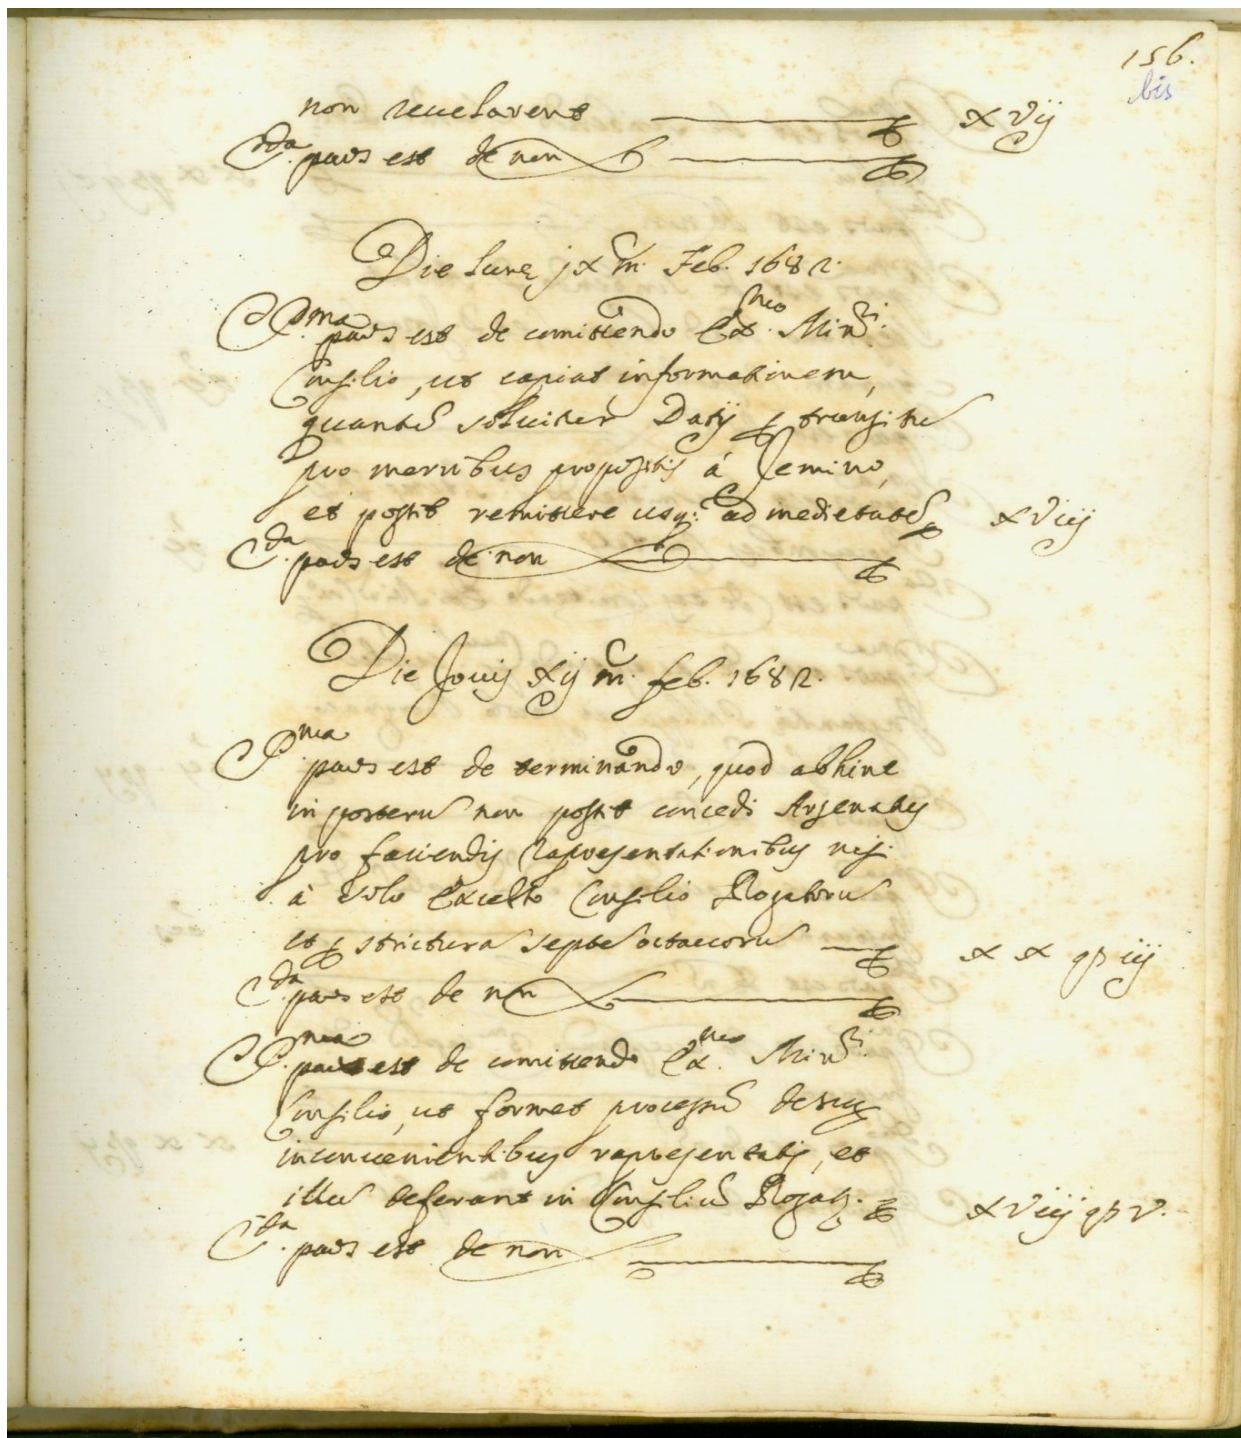 156.
bis
non reuelarent xvij
2.da pars est de non
Die lune jx m. Feb. 1682.
P.ma pars est de comittendo Ex.mo Min.ri
Consilio, ut capiat informationem,
quantũ soluitur Datij transitu
pro mercibus propositis á Jemino,
et possit remittere usq: ad medietatẽ xviij
2.da pars est de non
Die Jouis xij m. feb. 1682.
P.ma pars est de terminando, quod abhinc
in posterũ non possit concedi Arsenatus
pro faciendis rapresentationibus nisi
à solo Excelso Consilio Rogatorũ
et strictura septẽ octauorũ x x qp iij
2.da pars est de non
P.ma pars est de comittendo Ex.mo Min.ri
Consilio, ut formet processũ de
inconuenientibus rapresentatis, et
illũ deferant in Consiliũ Rogat. xviij qp v.
2.da pars est de non